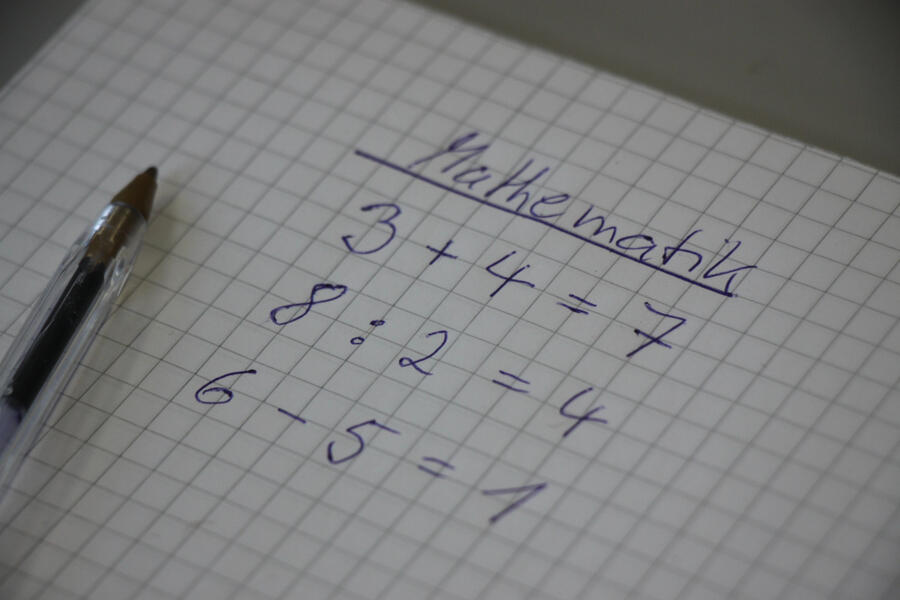 Mathematik
3 + 4 = 7
8 : 2 = 4
6 - 5 = 1